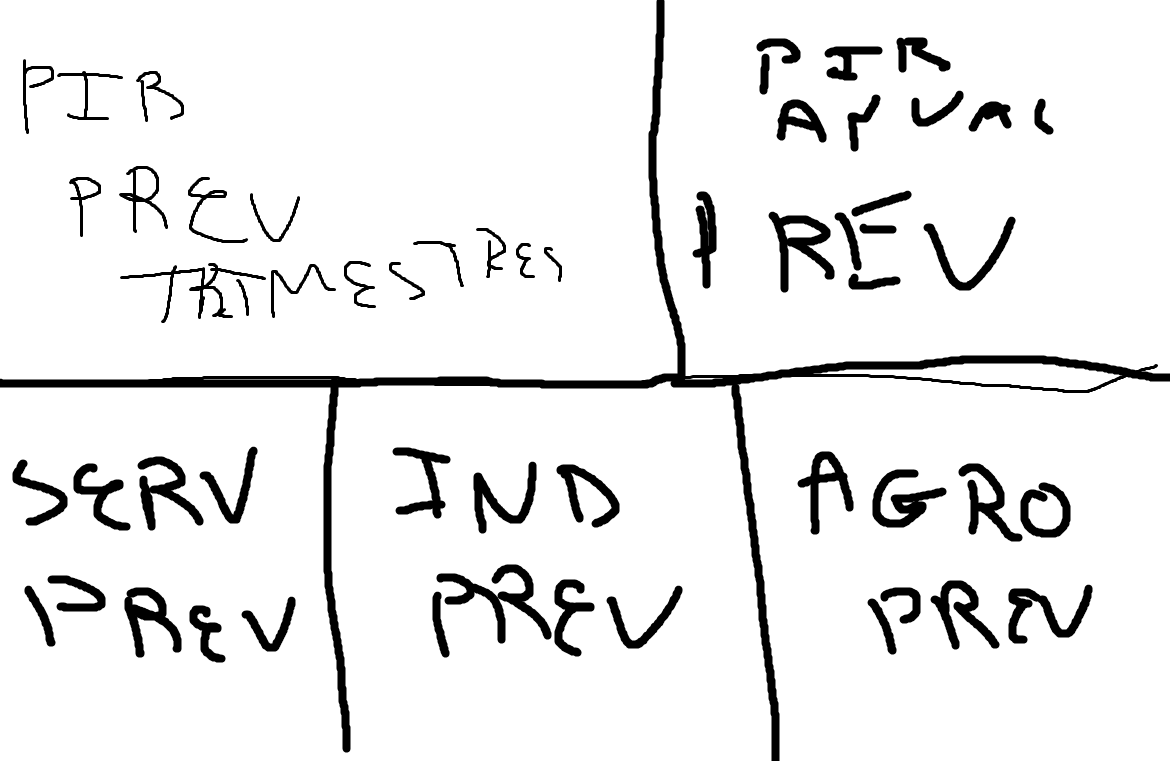 PIB
PREV
TRIMESTRES
PIB
ANUAL
PREV
SERV
PREV
IND
PREV
AGRO
PREV